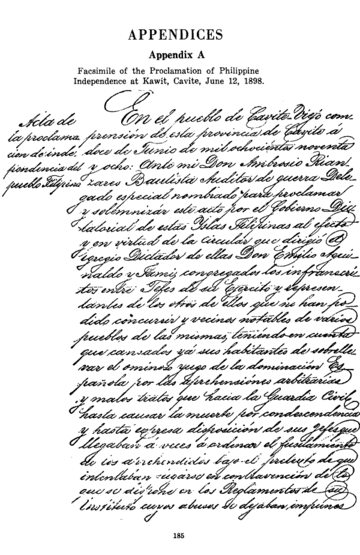 APPENDICES
Appendix A
Facsimile of the Proclamation of Philippine
Independence at Kawit, Cavite, June 12, 1898.
Acta de
la proclama
cion de inde
pendencia del
pueblo Filipino
En el pueblo de Cavite Viejo com
prension de esta provincia de Cavite á
doce de Junio de mil ochocientos noventa
y ocho: Ante mi Don Ambrosio Rian
zares Bautista Auditor de guerra Dele
gado especial nombrado para proclamar
y solemnizar este acto por el Gobierno Dic
tatorial de estas Islas Filipinas al efecto
y en virtud de la circular que dirigio el
Egregio Dictador de ellas Don Emilio Agui
naldo y Famy, congregados los infraescri
tos entre Jefes de su Ejercito y represen
tantes de los otros de ellos que no han po
dido concurrir y vecinos notables de varios
pueblos de las mismas, teniendo en cuenta
que cansados ya sus habitantes de sobrelle
var el ominoso yugo de la dominacion Es
pañola por las aprehensiones arbitrarias
y malos tratos que hacia la Guardia Civil
hasta causar la muerte por condescendencia
y hasta expresa disposicion de sus gefes que
llegaban á veces á ordenar el fusilamiento
de los aprehendidos bajo el pretexto de que
intentaban en contravencion de lo
que se dispone en los Reglamentos de su
Instituto cuyos abusos se dejaban impunes
185